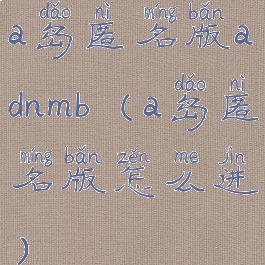 dǎo nì míng bǎn
a岛匿名版a
dǎo nì
dnmb(a岛匿
míng bǎn zěn me jìn
名版怎么进
)